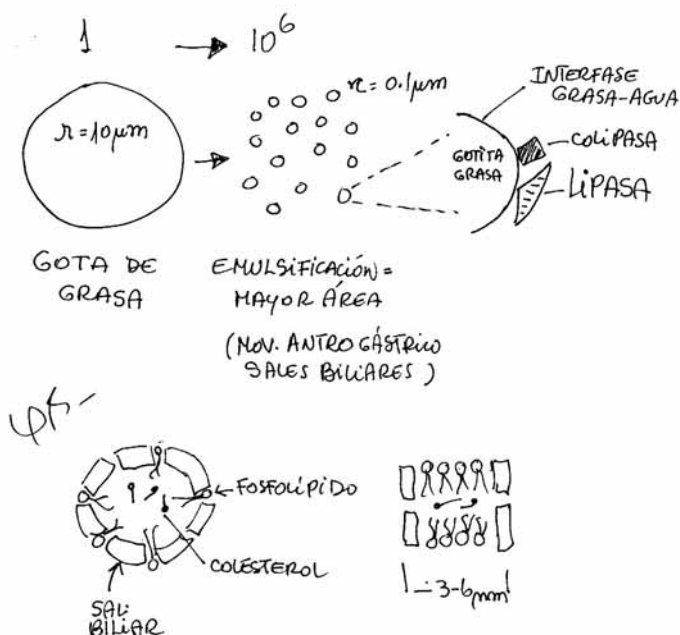 1 → 10⁶
r = 10 µm
r = 0.1 µm
INTERFASE
GRASA-AGUA
GOTITA
GRASA
COLIPASA
LIPASA
GOTA DE
GRASA
EMULSIFICACIÓN =
MAYOR ÁREA
(MOV. ANTRO GÁSTRICO
SALES BILIARES)
FOSFOLÍPIDO
COLESTEROL
SAL
BILIAR
3-6 mm